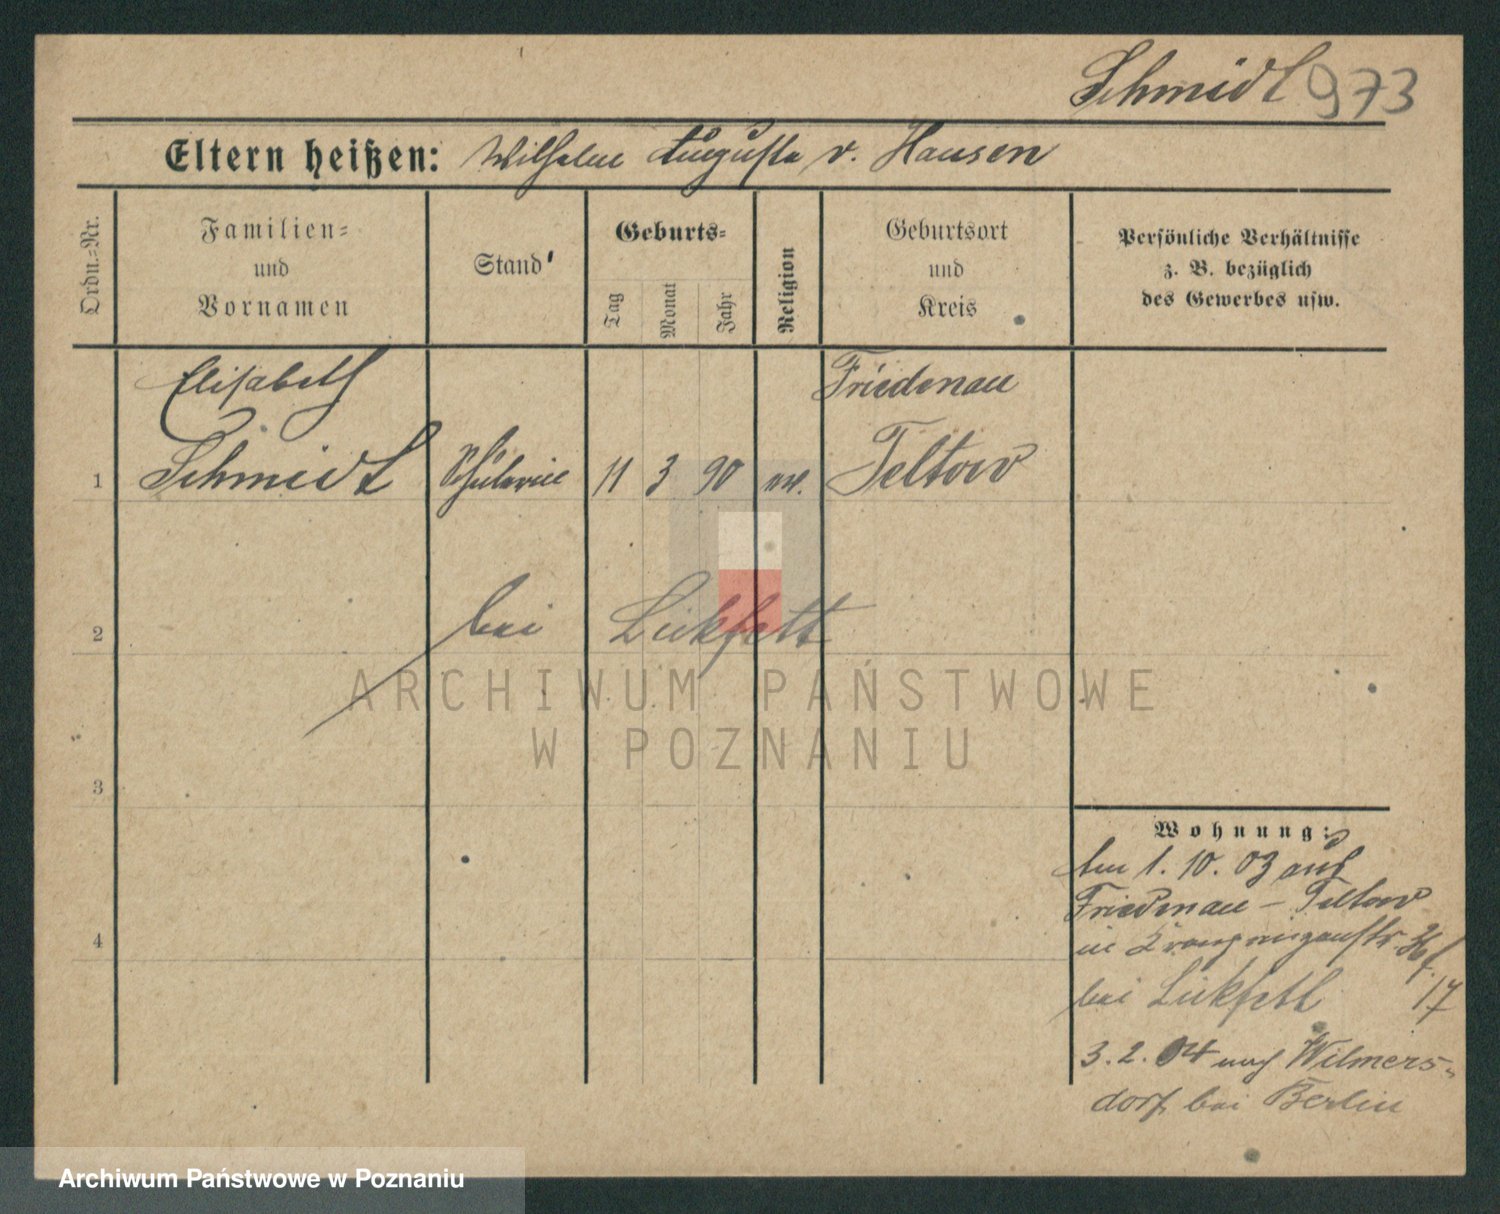 Schmidt 973
Eltern heißen: Wilhelm Auguste v. Hansen
Ordn.-Nr.
Familien-
und
Vornamen
Stand
Geburts-
Tag
Monat
Jahr
Religion
Geburtsort
und
Kreis
Persönliche Verhältnisse
z. B. bezüglich
des Gewerbes usw.
Elisabeth
Friedenau
1 Schmidt Schülerin 11 3 90 ev. Teltow
2 bei Lükfett
3
4
Wohnung:
Am 1. 10. 03 aus
Friedenau - Teltow
in
bei Lükfett 17
3. 2. 04 nach Wilmers-
dorf bei Berlin
ARCHIWUM PAŃSTWOWE
W POZNANIU
Archiwum Państwowe w Poznaniu